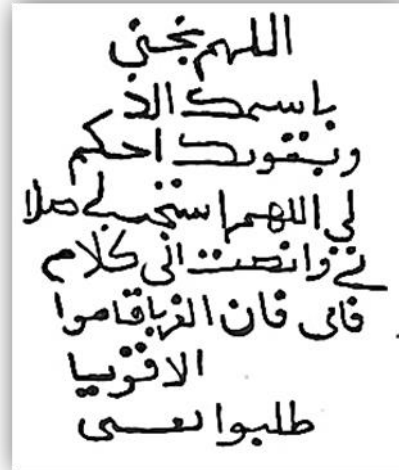 اللهم نجني
باسمك الد
وبقوتك احكم
لي اللهم استجب لي صلا
تي وانصت الى كلام
فاى فان الغربا قاموا
الاقويا
طلبوا نفسى